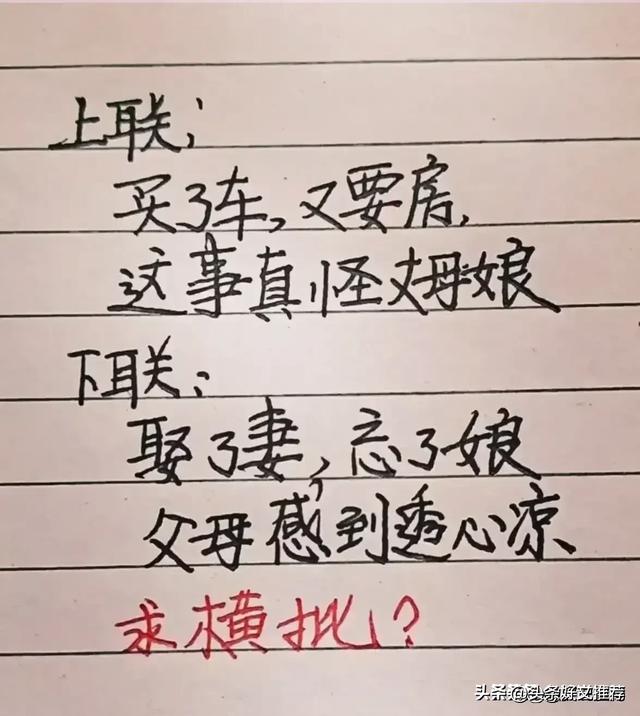 上联：
买了车，又要房，
这事真怪丈母娘
下联：
娶了妻，忘了娘
父母感到透心凉
求横批？
头条@头条好文推荐